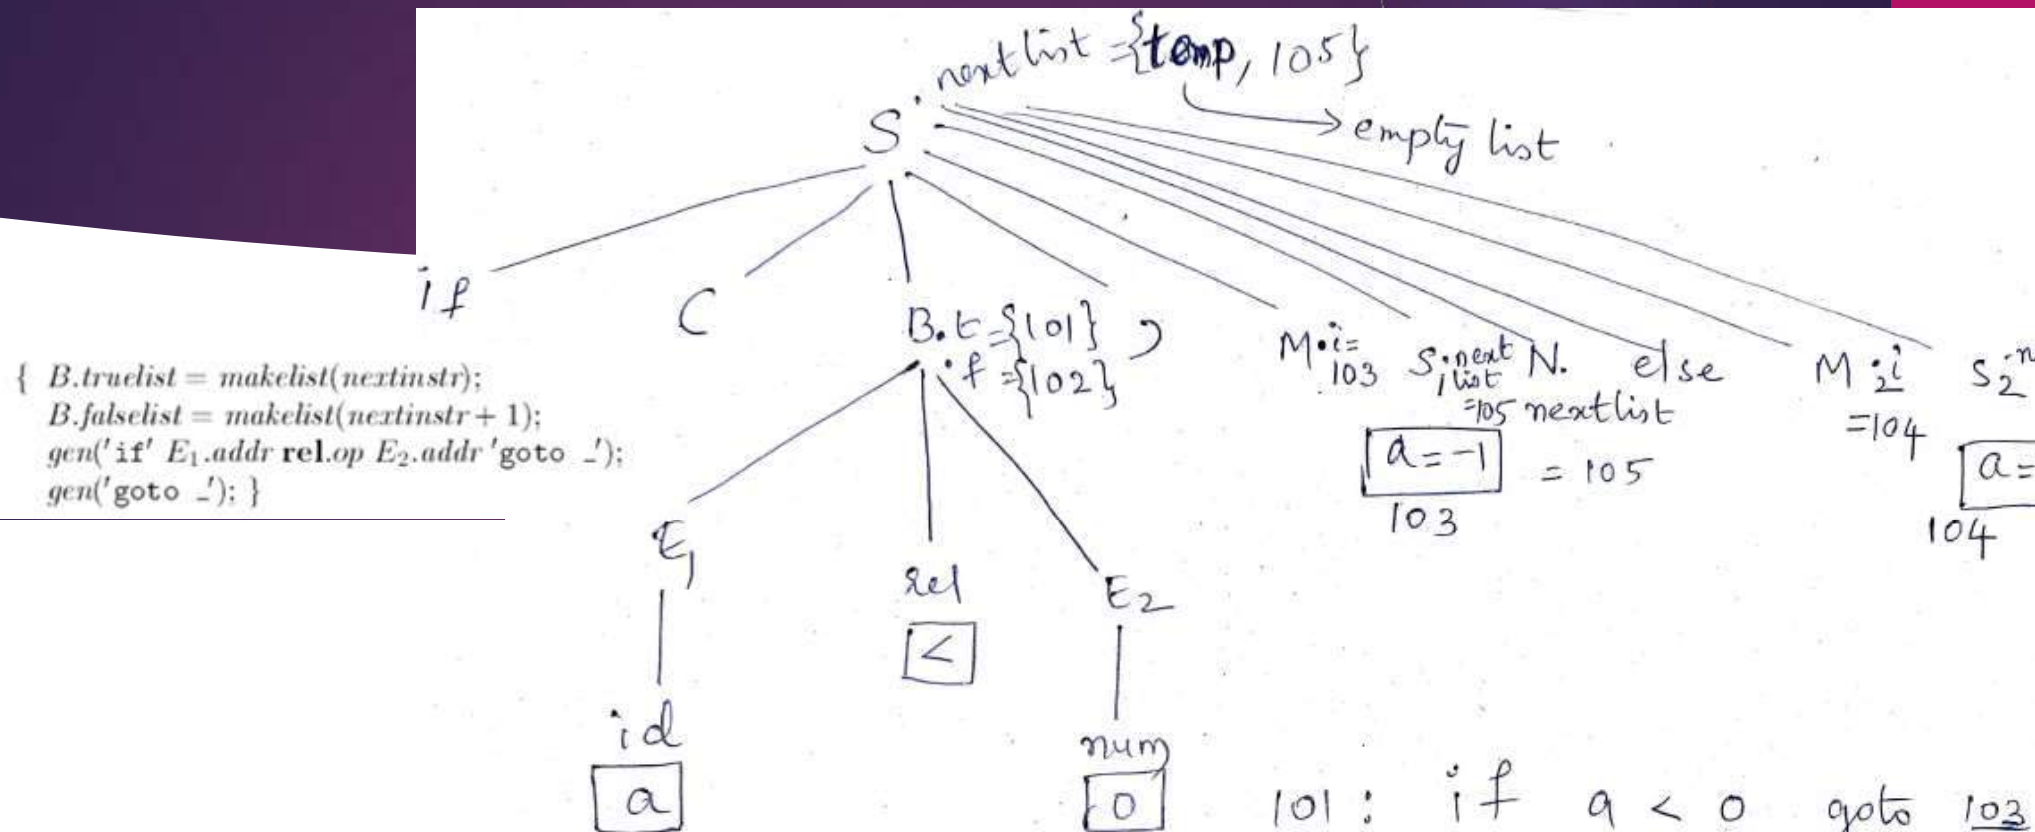 nextlist = {temp, 105}
→ empty list
S .
if ( B.t={101} ) M.i= 103 S1.next list =105 N. nextlist = 105 else M2.i =104 S2
.f ={102}
a=-1
103
a=
104
{ B.truelist = makelist(nextinstr);
B.falselist = makelist(nextinstr + 1);
gen('if' E₁.addr rel.op E₂.addr 'goto _');
gen('goto _'); }
E1 rel E2
<
id num
a 0
101 : if a < 0 goto 103